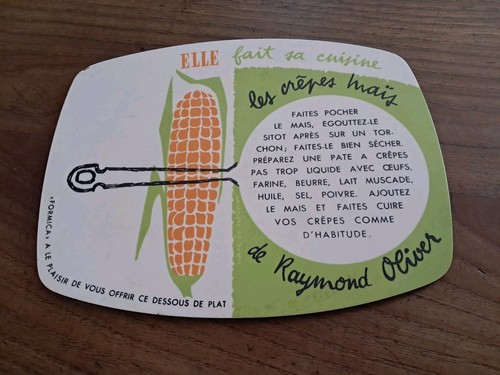 ELLE fait sa cuisine
les crêpes maïs
FAITES POCHER
LE MAIS, EGOUTTEZ-LE
SITOT APRÈS SUR UN TOR-
CHON; FAITES-LE BIEN SÉCHER.
PRÉPAREZ UNE PATE A CRÊPES
PAS TROP LIQUIDE AVEC ŒUFS,
FARINE, BEURRE, LAIT MUSCADE,
HUILE, SEL, POIVRE. AJOUTEZ
LE MAIS ET FAITES CUIRE
VOS CRÊPES COMME
D'HABITUDE.
de Raymond Oliver
«FORMICA» A LE PLAISIR DE VOUS OFFRIR CE DESSOUS DE PLAT